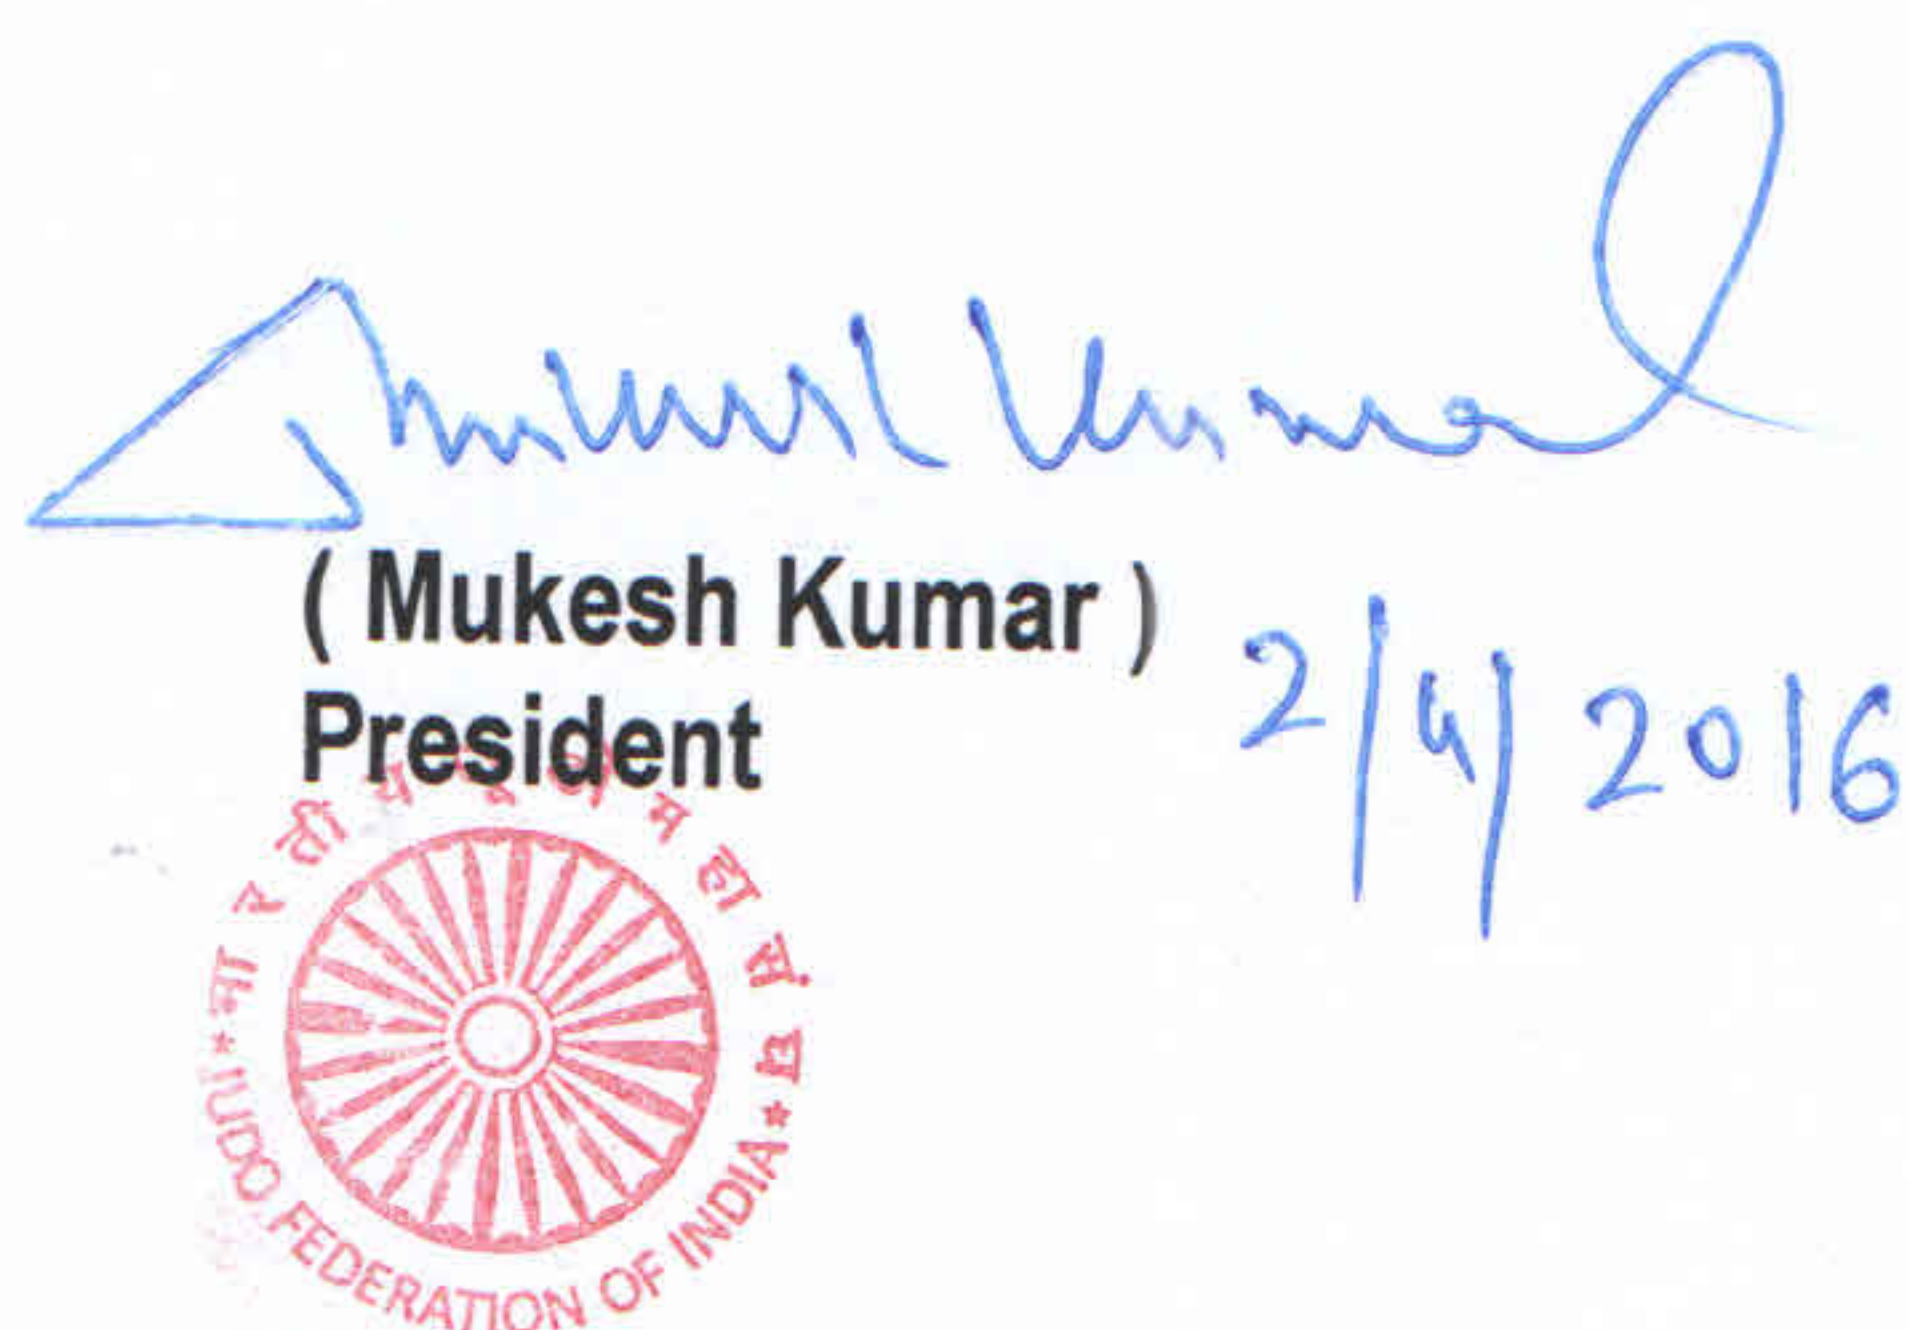 Mukesh Kumar
( Mukesh Kumar )
President
2/4/2016
JUDO FEDERATION OF INDIA